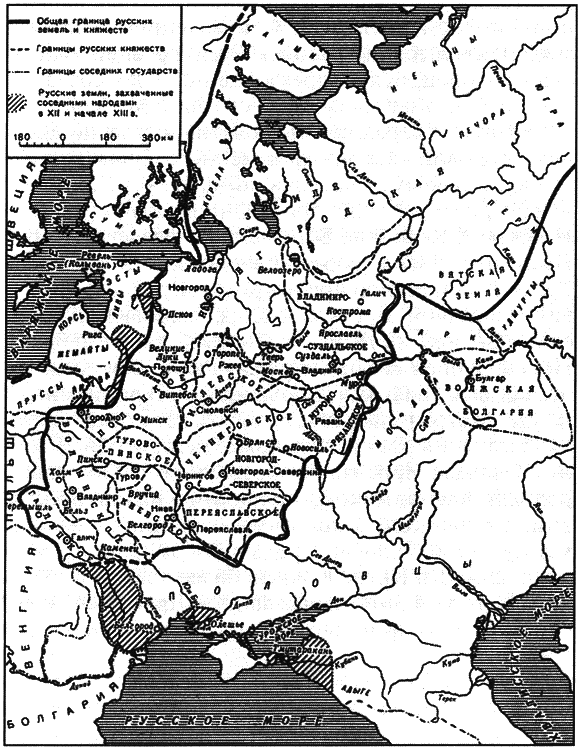 Общая граница русских
земель и княжеств
Границы русских княжеств
Границы соседних государств
Русские земли, захваченные
соседними народами
в XII и начале XIII в.
180 0 180 360 км
САМИ
НЕНЦЫ
ПЕЧОРА
ЮГРА
ШВЕЦИЯ
ВАРЯЖСКОЕ МОРЕ
КОРЕЛА
НОВГОРОДСКАЯ
ЗЕМЛЯ
Сев. Двина
ПЕРМЬ
Ревель
(Колывань)
ЭСТЫ
Ладога
Белоозеро
Новгород
ВЯТСКАЯ
ЗЕМЛЯ
Галич
ВЛАДИМИРО-
Кострома
Псков
ЛИВЫ
КОРСЬ
Рига
Ярославль
СУЗДАЛЬСКОЕ
МАРИ
УДМУРТЫ
ЖЕМАЙТЫ
Великие
Луки
Торопец
Ржев
Тверь
Суздаль
Москва
Владимир
Ока
Кама
Полоцк
ПРУССЫ
ЛИТВА
Витебск
Смоленск
Булгар
ВОЛЖСКАЯ
БОЛГАРИЯ
Городно
Минск
МУРОМО-
Рязань
РЯЗАНСКОЕ
МОРДВА
ПОЛЬША
ТУРОВО-
ПИНСКОЕ
ЧЕРНИГОВСКОЕ
Брянск
НОВГОРОД-
Новосиль
Пинск
Туров
Новгород-Северский
-СЕВЕРСКОЕ
Холм
Владимир
Вручий
Чернигов
Белз
КИЕВСКОЕ
Киев
ПЕРЕЯСЛЬВСКОЕ
Перемышль
Белгород
Переяславль
Галич
Каменец
Сев. Донец
ПОЛОВЦЫ
Днепр
Дон
Волга
ВЕНГРИЯ
Белгород
Олешье
Тмутаракань
Кубань
Кума
АДЫГЕ
Терек
Дунай
БОЛГАРИЯ
РУССКОЕ МОРЕ